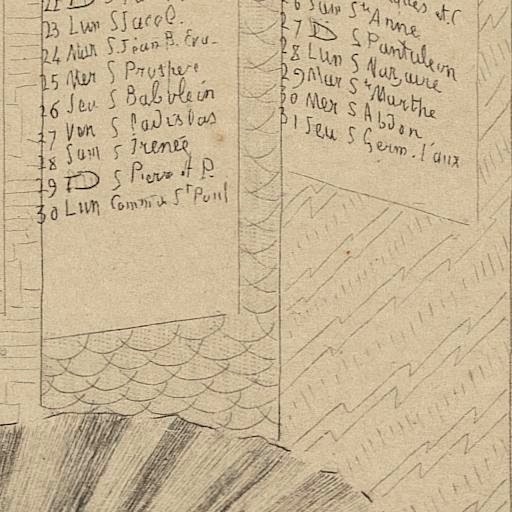 22 D S
23 Lun S Jacob.
24 Mar S Jean B. Eva.
25 Mer S Prosper
26 Jeu S Babolein
27 Ven S Ladislas
28 Sam S Irenée
29 D S Pierre et P.
30 Lun Comm. de St Paul
26 Sam Ste Anne
27 D S Pantaleon
28 Lun S Nazaire
29 Mar Ste Marthe
30 Mer S Abdon
31 Jeu S Germ. l'aux